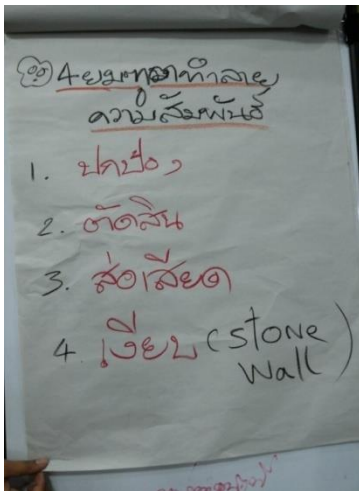 4 ยมทูตทำลาย
ความสัมพันธ์
1. ปกป้อง
2. ตัดสิน
3. ส่อเสียด
4. เงียบ (stone
wall)